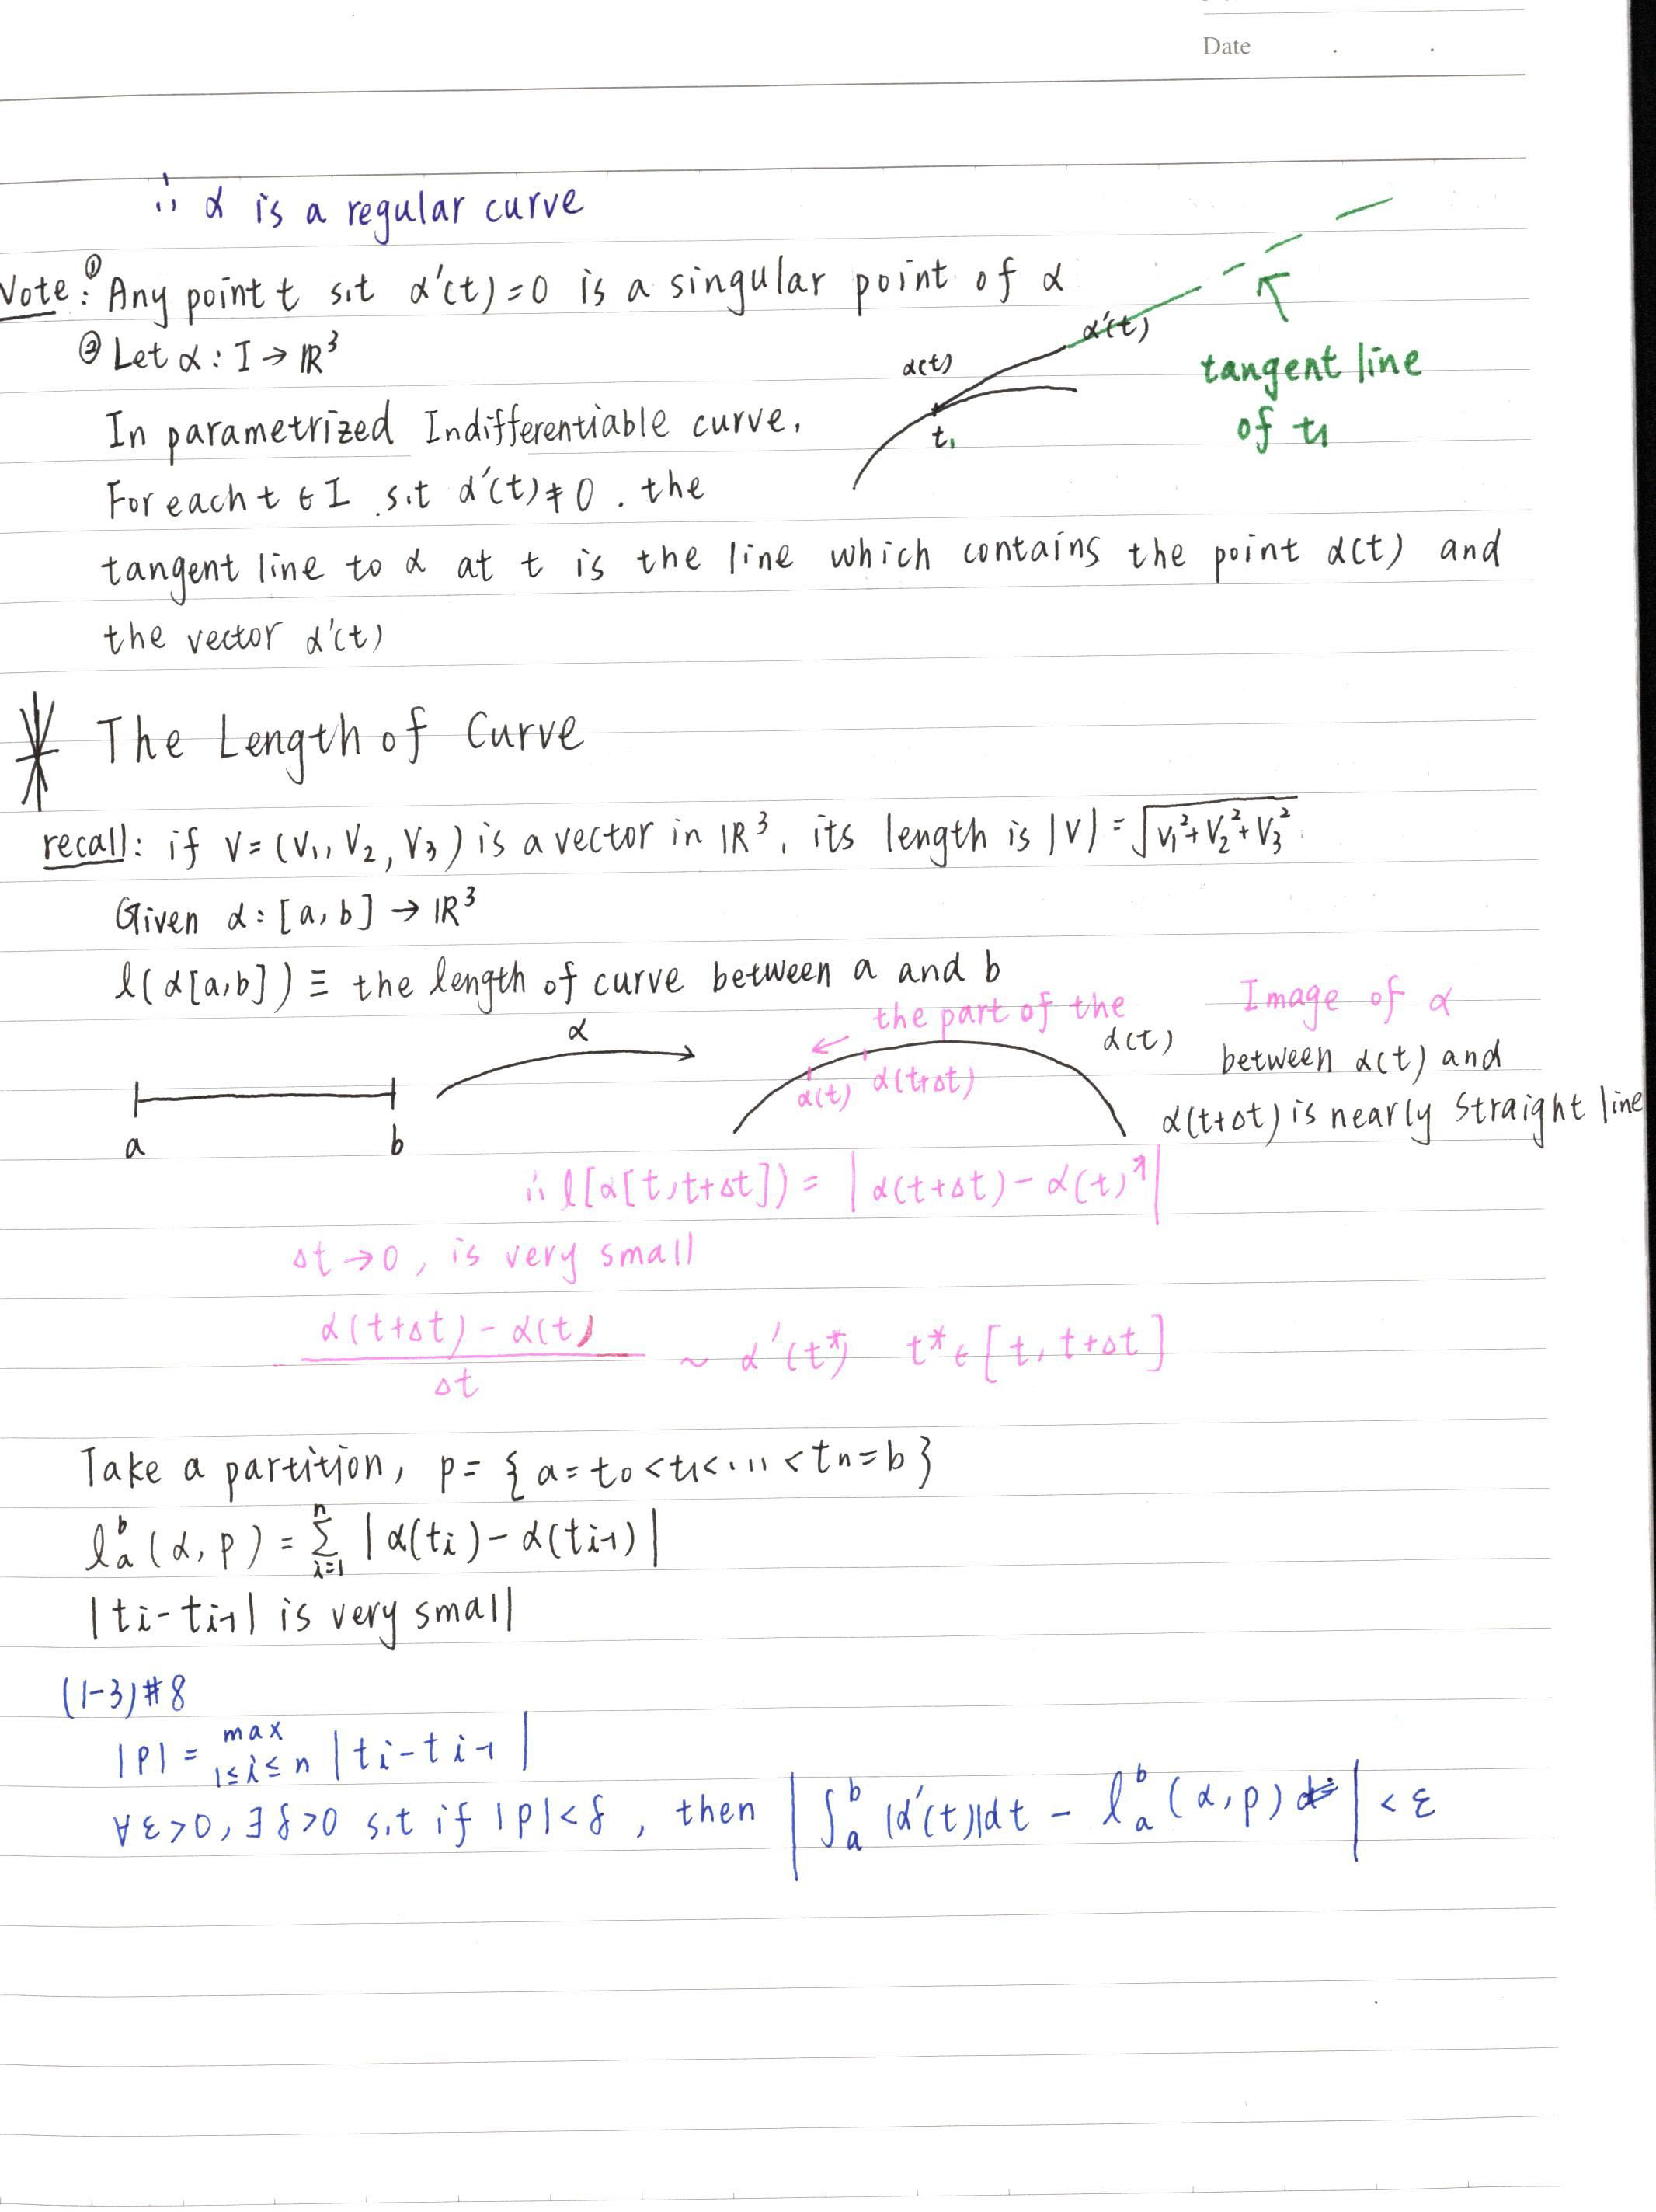 Date . .
∴ α is a regular curve
Note: ① Any point t s.t α'(t)=0 is a singular point of α
② Let α : I → ℝ³
α(t)
α'(t)
t₁
tangent line
of t₁
In parametrized Indifferentiable curve,
For each t ∈ I s.t α'(t)≠0. the
tangent line to α at t is the line which contains the point α(t) and
the vector α'(t)
The Length of Curve
recall: if V=(V₁, V₂, V₃) is a vector in ℝ³, its length is |V| = √(V₁²+V₂²+V₃²)
Given α : [a,b] → ℝ³
l(α[a,b]) ≡ the length of curve between a and b
α
a
b
the part of the
α(t)
α(t+Δt)
α(t)
Image of α
between α(t) and
α(t+Δt) is nearly straight line
∴ l[α[t,t+Δt]) = |α(t+Δt) - α(t)|
Δt → 0, is very small
(α(t+Δt) - α(t))/Δt ~ α'(t*) t* ∈ [t, t+Δt]
Take a partition, p = {a=t₀<t₁<...<tn=b}
lₐᵇ(α, p) = Σᵢ₌₁ⁿ |α(tᵢ) - α(tᵢ₋₁)|
|tᵢ-tᵢ₋₁| is very small
(1-3)#8
|P| = max 1≤i≤n |tᵢ-tᵢ₋₁|
∀ε>0, ∃δ>0 s.t if |p|<δ, then |∫ₐᵇ |α'(t)|dt - lₐᵇ(α,p)| < ε